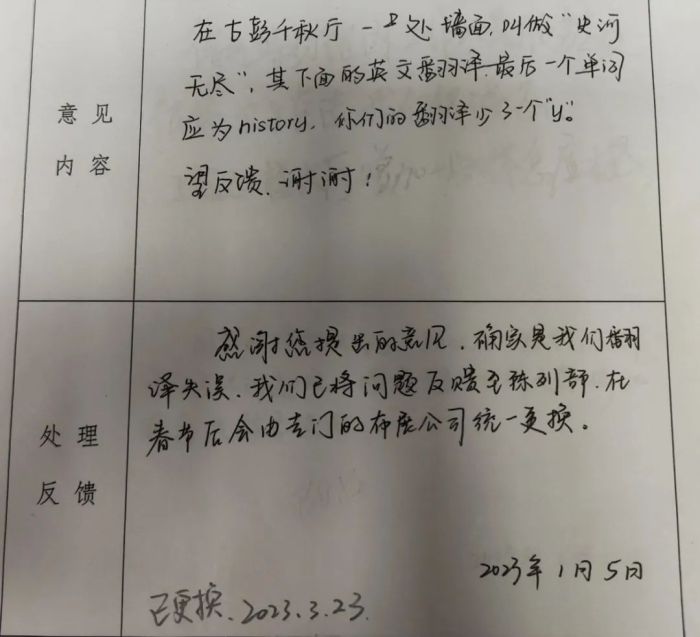 在古彭千秋厅一处墙面,叫做“史河
无尽”,其下面的英文翻译,最后一个单词
意见
内容
应为history,你们的翻译少了一个“y”。
望反馈,谢谢!
感谢您提出的意见,确实是我们翻
译失误,我们已将问题反馈至陈列部,在
春节后会由专门的布展公司统一更换。
处理
反馈
2023年1月5日
已更换、2023.3.23.